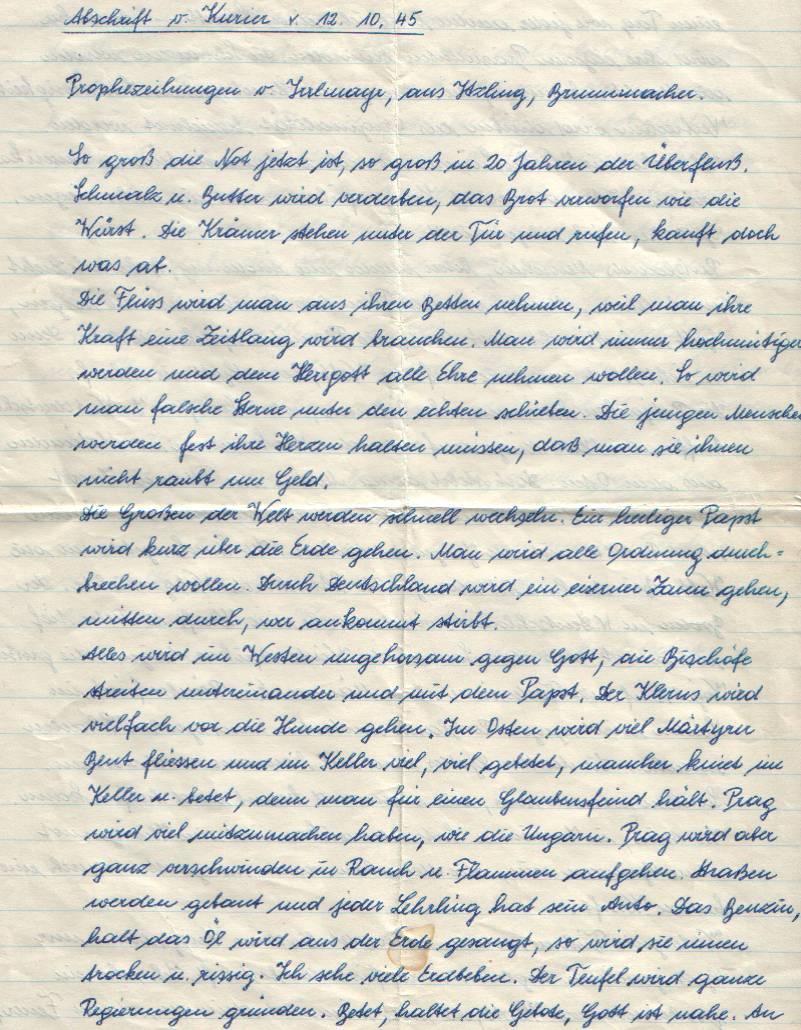 Abschrift v. Kurier v. 12. 10. 45
Prophezeihungen v. Irlmayr, aus Itzling, Brunnmacher.
So groß die Not jetzt ist, so groß in 20 Jahren der Überfluß.
Schmalz u. Butter wird verderben, das Brot verworfen wie die
Würst. Die Krämer stehen unter der Tür und rufen, kauft doch
was ab.
Die Flüss wird man aus ihren Betten nehmen, weil man ihre
Kraft eine Zeitlang wird brauchen. Man wird immer hochmütiger
werden und dem Herrgott alle Ehre nehmen wollen. So wird
man falsche Sterne unter den echten schieben. Die jungen Menschen
werden fest ihre Herzen halten müssen, daß man sie ihnen
nicht raubt um Geld.
Die Großen der Welt werden schnell wechseln. Ein heiliger Papst
wird kurz über die Erde gehen. Man wird alle Ordnung durch=
brechen wollen. Durch Deutschland wird ein eiserner Zaun gehen,
mitten durch, wer ankommt stirbt.
Alles wird im Westen ungehorsam gegen Gott, die Bischöfe
streiten untereinander und mit dem Papst. Der Klerus wird
vielfach vor die Hunde gehen. Im Osten wird viel Märtyrer
Blut fliessen und im Keller viel, viel gebetet, mancher kniet im
Keller u. betet, dem man für einen Glaubensfeind hält. Prag
wird viel mitzumachen haben, wie die Ungarn. Prag wird aber
ganz verschwinden in Rauch u. Flammen aufgehen. Straßen
werden gebaut und jeder Lehrling hat sein Auto. Das Benzin,
halt das Öl wird aus der Erde gesaugt, so wird sie innen
trocken u. rissig. Ich sehe viele Erdbeben. Der Teufel wird ganze
Regierungen gründen. Betet, haltet die Gebote, Gott ist nahe. An